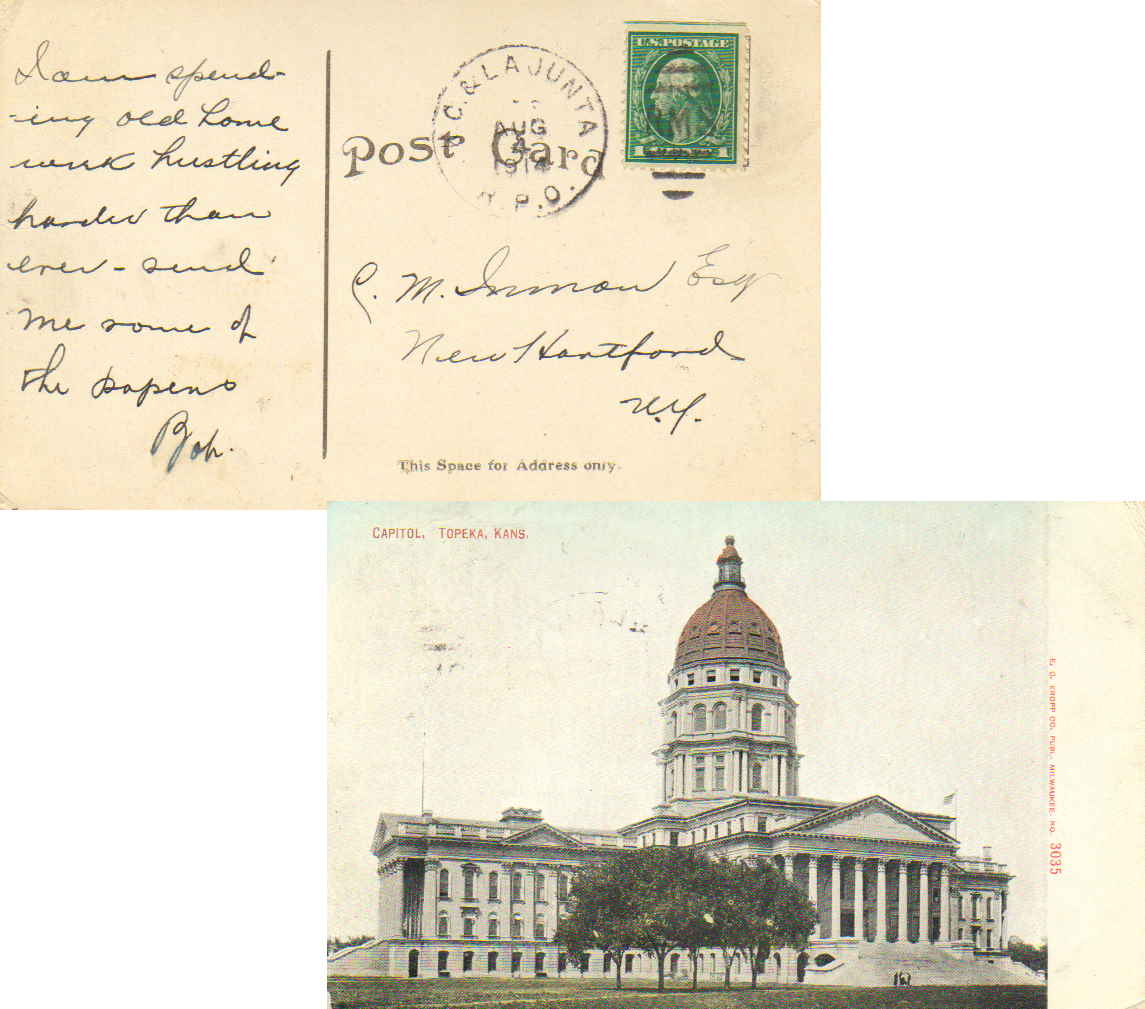 I am spend-
-ing old home
week hustling
harder than
ever - send
me some of
the papers
Bob.
Post Card
C. & LA JUNTA
AUG
4
1914
R.P.O.
U.S. POSTAGE
1 1
C. M. Inman Esq
New Hartford
N.Y.
This Space for Address only.
CAPITOL, TOPEKA, KANS.
E. C. KROPP CO. PUBL. MILWAUKEE. NO. 3035